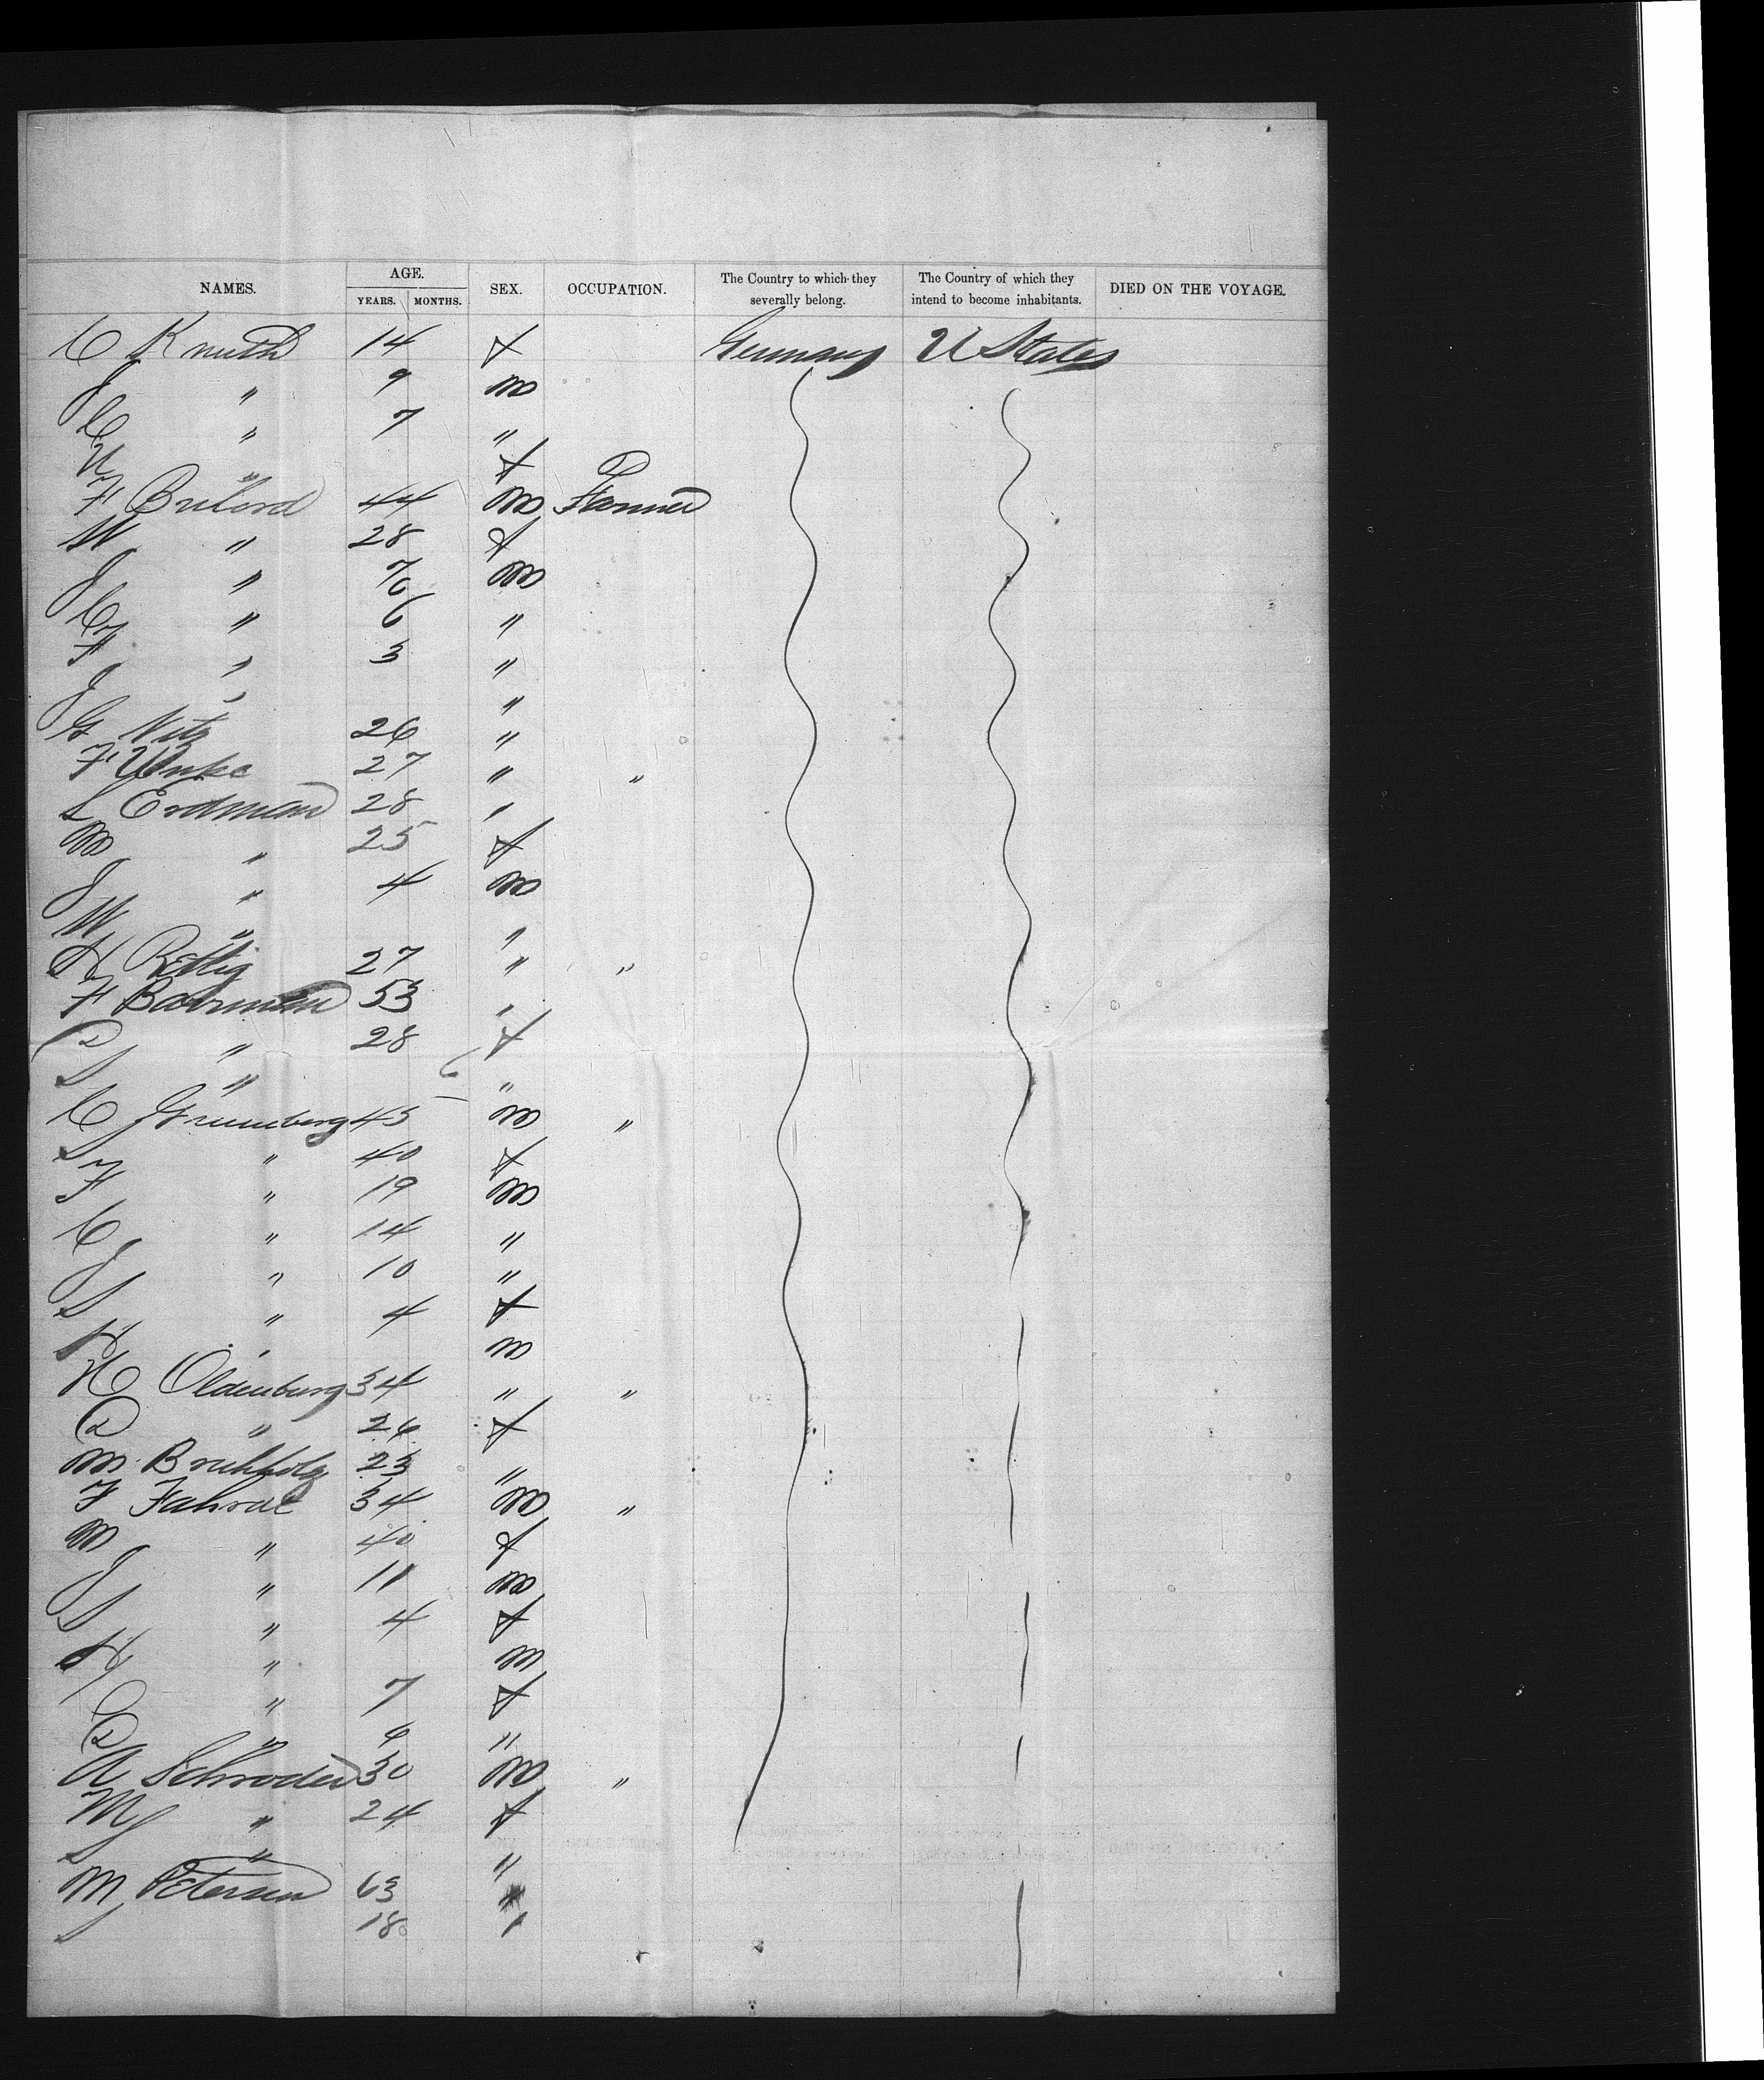 NAMES. AGE. YEARS. MONTHS. SEX. OCCUPATION. The Country to which they severally belong. The Country of which they intend to become inhabitants. DIED ON THE VOYAGE.
C Knuth 14 f Germany U States
J " 9 m
C " 7 "
U " f
F 44 m Farmer
W " 28 f
J " m
C " 6 "
F " 3 "
J " "
G Nitz 26 "
F 27 " "
L Erdman 28 "
M " 25 f
J " 4 m
W " "
H Rettig 27 " "
F Boorman 53 "
D " 28 f
S " 6 "
C Grumberg 45 m "
S " 40 f
F " 19 m
C " 14 "
J " 10 "
S " 4 f
H " m
H Oldenburg 34 " "
D " 26 f
M Bruhholz 23 "
F 34 m "
M " 40 f
J " 11 m
S " 4 f
H " m
" 7 f
D " 6 "
A Schroder 30 m "
M " 24 f
S " "
M Petersen 63 "
S 18 "